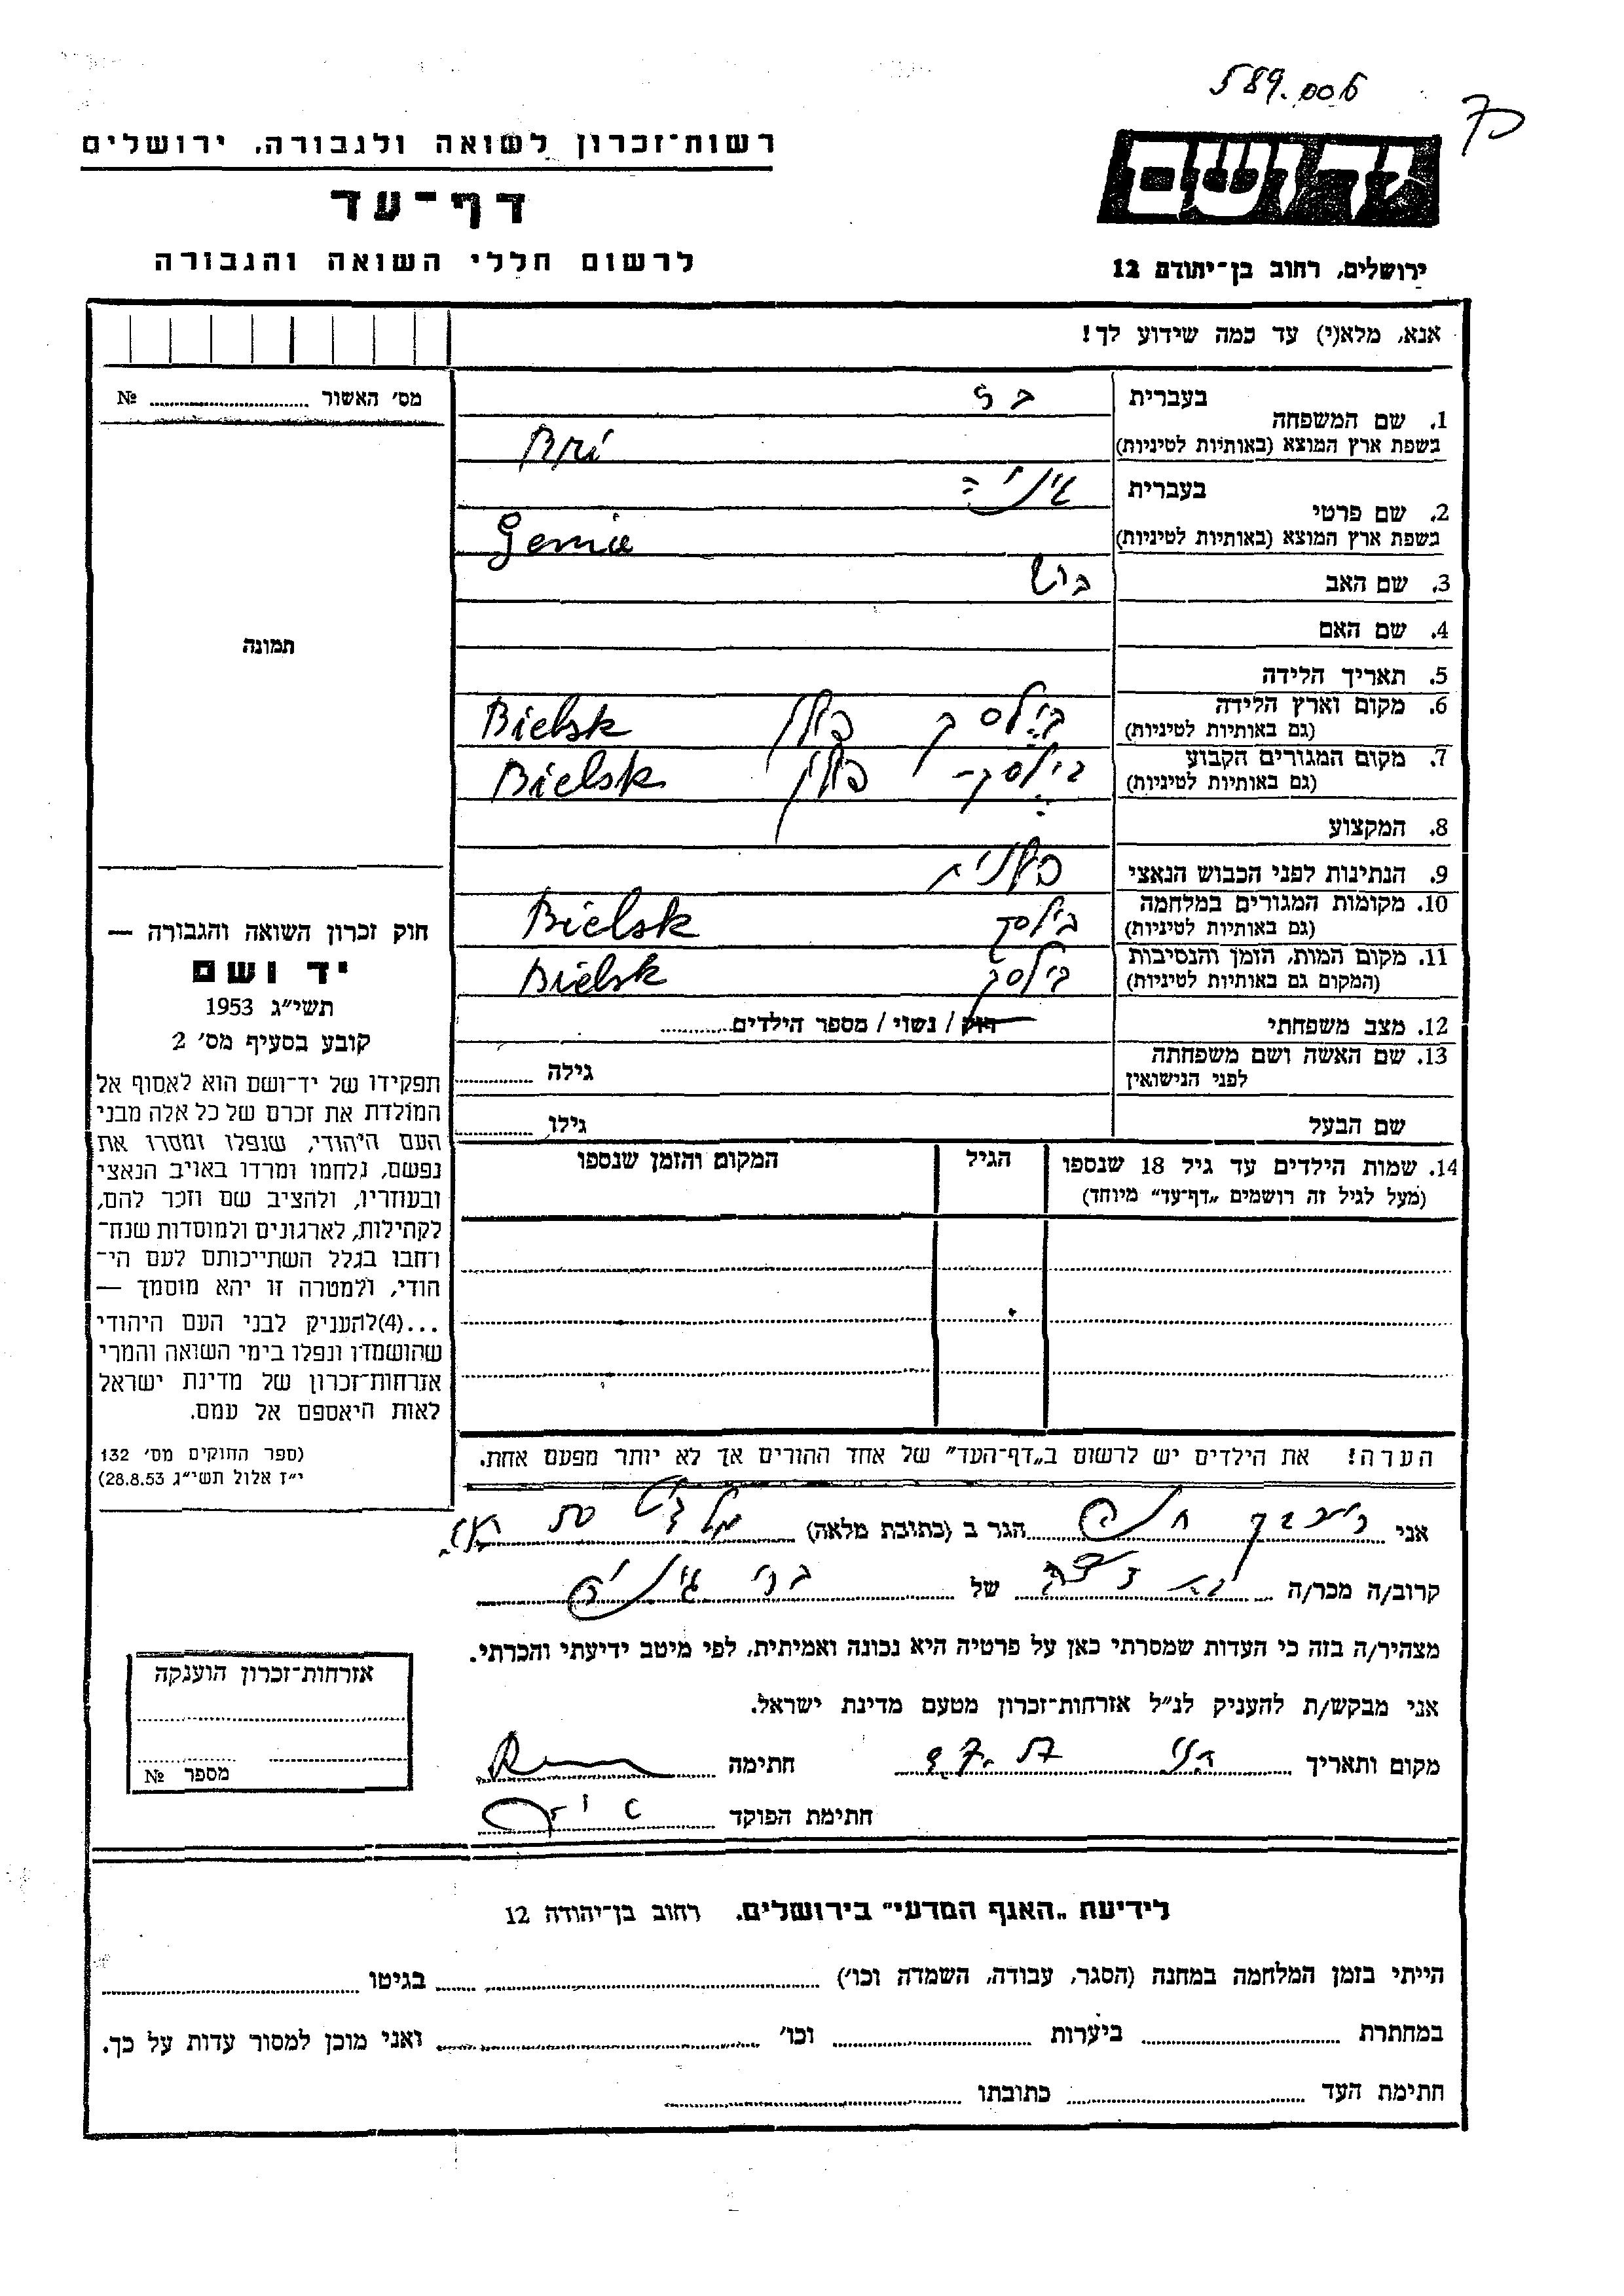 589.006
רשות־זכרון לשואה ולגבורה, ירושלים
יד ושם
דף־עד
לרשום חללי השואה והגבורה
ירושלים, רחוב בן־יהודה 12
אנא, מלא(י) עד כמה שידוע לך!
מס׳ האשור № 
בעברית
1. שם המשפחה
בשפת ארץ המוצא (באותיות לטיניות) Bri
בעברית גיניה
2. שם פרטי
בשפת ארץ המוצא (באותיות לטיניות) Genia
3. שם האב
4. שם האם
תמונה
5. תאריך הלידה
6. מקום וארץ הלידה בילסק פולין Bielsk
(גם באותיות לטיניות)
7. מקום המגורים הקבוע בילסק פולין Bielsk
(גם באותיות לטיניות)
8. המקצוע
9. הנתינות לפני הכבוש הנאצי פולנית
10. מקומות המגורים במלחמה בילסק Bielsk
(גם באותיות לטיניות)
11. מקום המות, הזמן והנסיבות בילסק Bielsk
(המקום גם באותיות לטיניות)
12. מצב משפחתי רוק / נשוי / מספר הילדים
13. שם האשה ושם משפחתה גילה
לפני הנישואין
שם הבעל גילו
14. שמות הילדים עד גיל 18 שנספו הגיל המקום והזמן שנספו
(מעל לגיל זה רושמים „דף־עד״ מיוחד)
חוק זכרון השואה והגבורה —
יד ושם
תשי״ג 1953
קובע בסעיף מס׳ 2
תפקידו של יד־ושם הוא לאסוף אל
המולדת את זכרם של כל אלה מבני
העם היהודי, שנפלו ומסרו את
נפשם, נלחמו ומרדו באויב הנאצי
ובעוזריו, ולהציב שם וזכר להם,
לקהילות, לארגונים ולמוסדות שנח־
רחבו בגלל השתייכותם לעם הי־
הודי, ולמטרה זו יהא מוסמך —
...(4)להעניק לבני העם היהודי
שהושמדו ונפלו בימי השואה והמרי
אזרחות־זכרון של מדינת ישראל
לאות היאספם אל עמם.
(ספר החוקים מס׳ 132
י״ז אלול תשי״ג 28.8.53)
הערה! את הילדים יש לרשום ב„דף־העד״ של אחד ההורים אך לא יותר מפעם אחת.
אני הגר ב (כתובת מלאה)
קרוב/ה מכר/ה של ברי גיניה
מצהיר/ה בזה כי העדות שמסרתי כאן על פרטיה היא נכונה ואמיתית, לפי מיטב ידיעתי והכרתי.
אני מבקש/ת להעניק לנ״ל אזרחות־זכרון מטעם מדינת ישראל.
מקום ותאריך חתימה
חתימת הפוקד
אזרחות־זכרון הוענקה
מספר №
לידיעת „האגף המדעי״ בירושלים, רחוב בן־יהודה 12
הייתי בזמן המלחמה במחנה (הסגר, עבודה, השמדה וכו׳) בגיטו
במחתרת ביערות וכו׳ ואני מוכן למסור עדות על כך.
חתימת העד כתובתו